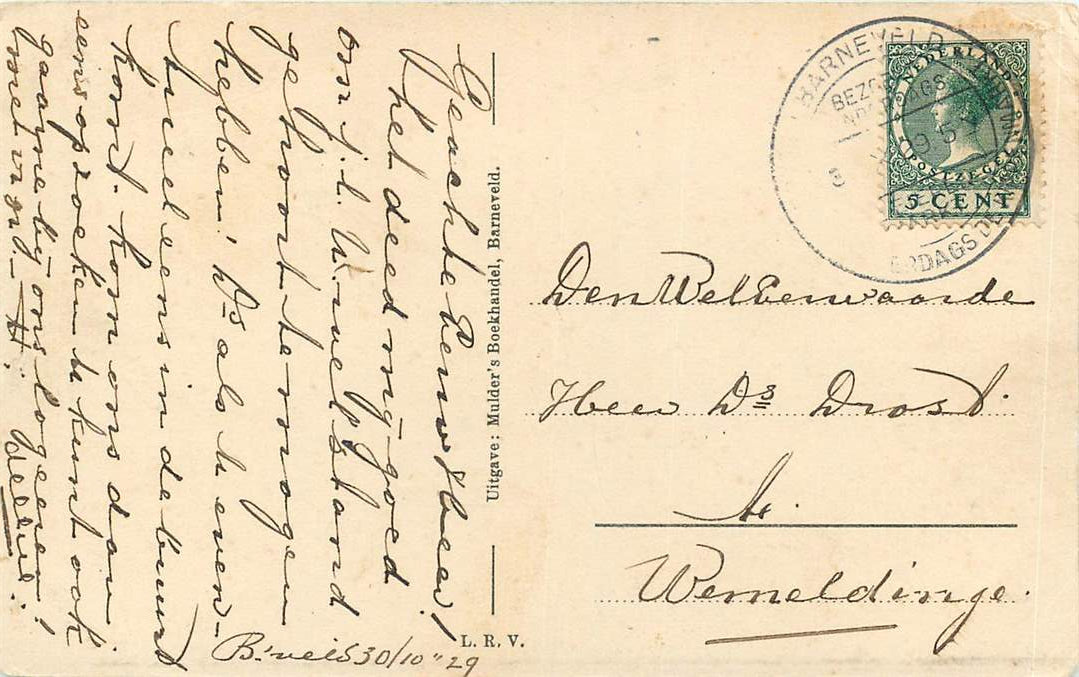 Geachte Eerw Heer!
Het deed mij goed
om j.l. Uw welstand
gehoort te mogen
hebben, Ds als U even-
tueel eens in de buurt
komt. kom ons dan
eens opzoeken U kunt ook
gaarne bij ons logeeren!
met vrgd.—H:
B:veld 30/10 "29
Uitgave: Mulder's Boekhandel, Barneveld.
L. R. V.
BARNEVELD
NEDERLAND
POSTZEGEL
5 CENT
Den WelEerwaarde
Heer Ds Drost.
te.
Wemeldinge.